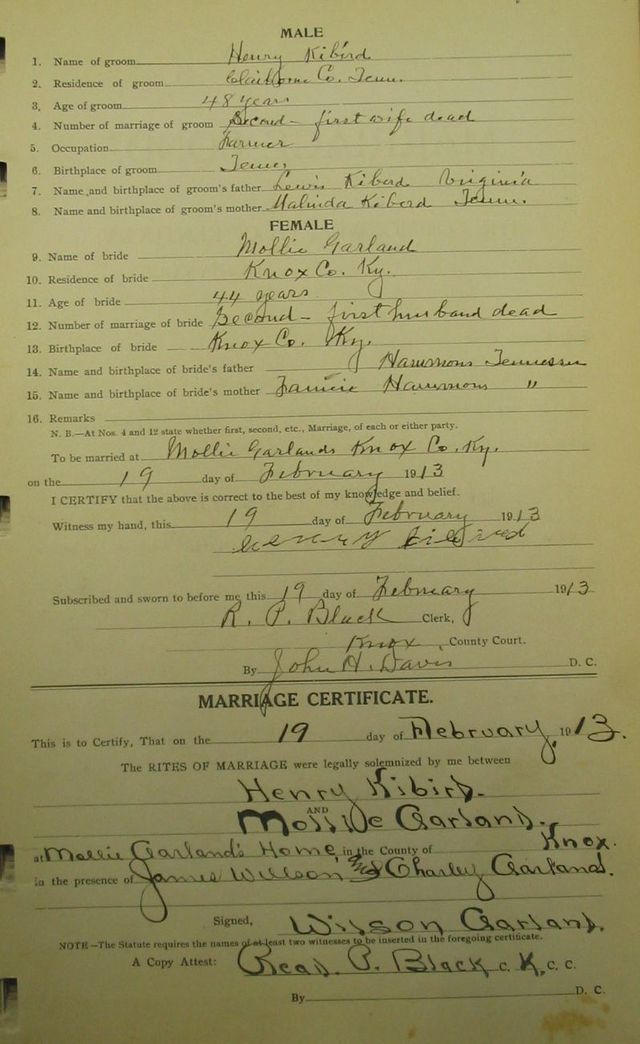 MALE
1. Name of groom Henry Kibird
2. Residence of groom Claiborne Co. Tenn.
3. Age of groom 48 years
4. Number of marriage of groom Second - first wife dead
5. Occupation Farmer
6. Birthplace of groom Tenn.
7. Name and birthplace of groom's father Lewis Kiberd Virginia
8. Name and birthplace of groom's mother Malinda Kiberd Tenn.
FEMALE
9. Name of bride Mollie Garland
10. Residence of bride Knox Co. Ky.
11. Age of bride 44 years
12. Number of marriage of bride Second - first husband dead
13. Birthplace of bride Knox Co. Ky.
14. Name and birthplace of bride's father Hammons Tennessee
15. Name and birthplace of bride's mother Hammons "
16. Remarks
N. B.—At Nos. 4 and 12 state whether first, second, etc., Marriage, of each or either party.
To be married at Mollie Garlands Knox Co. Ky.
on the 19 day of February 1913
I CERTIFY that the above is correct to the best of my knowledge and belief.
Witness my hand, this 19 day of February 1913
Henry
Subscribed and sworn to before me this 19 day of February 1913
R. P. Black Clerk,
Knox, County Court.
By John H. Davis D. C.
MARRIAGE CERTIFICATE.
This is to Certify, That on the 19 day of February, 1913.
The RITES OF MARRIAGE were legally solemnized by me between
Henry Kibird.
AND
Mollie Garland.
at Mollie Garland's Home in the County of Knox.
in the presence of James Willson and Charley Garland.
Signed, Wilson Garland.
NOTE—The Statute requires the names of at least two witnesses to be inserted in the foregoing certificate.
A Copy Attest: Read P. Black C. K. C. C.
By D. C.